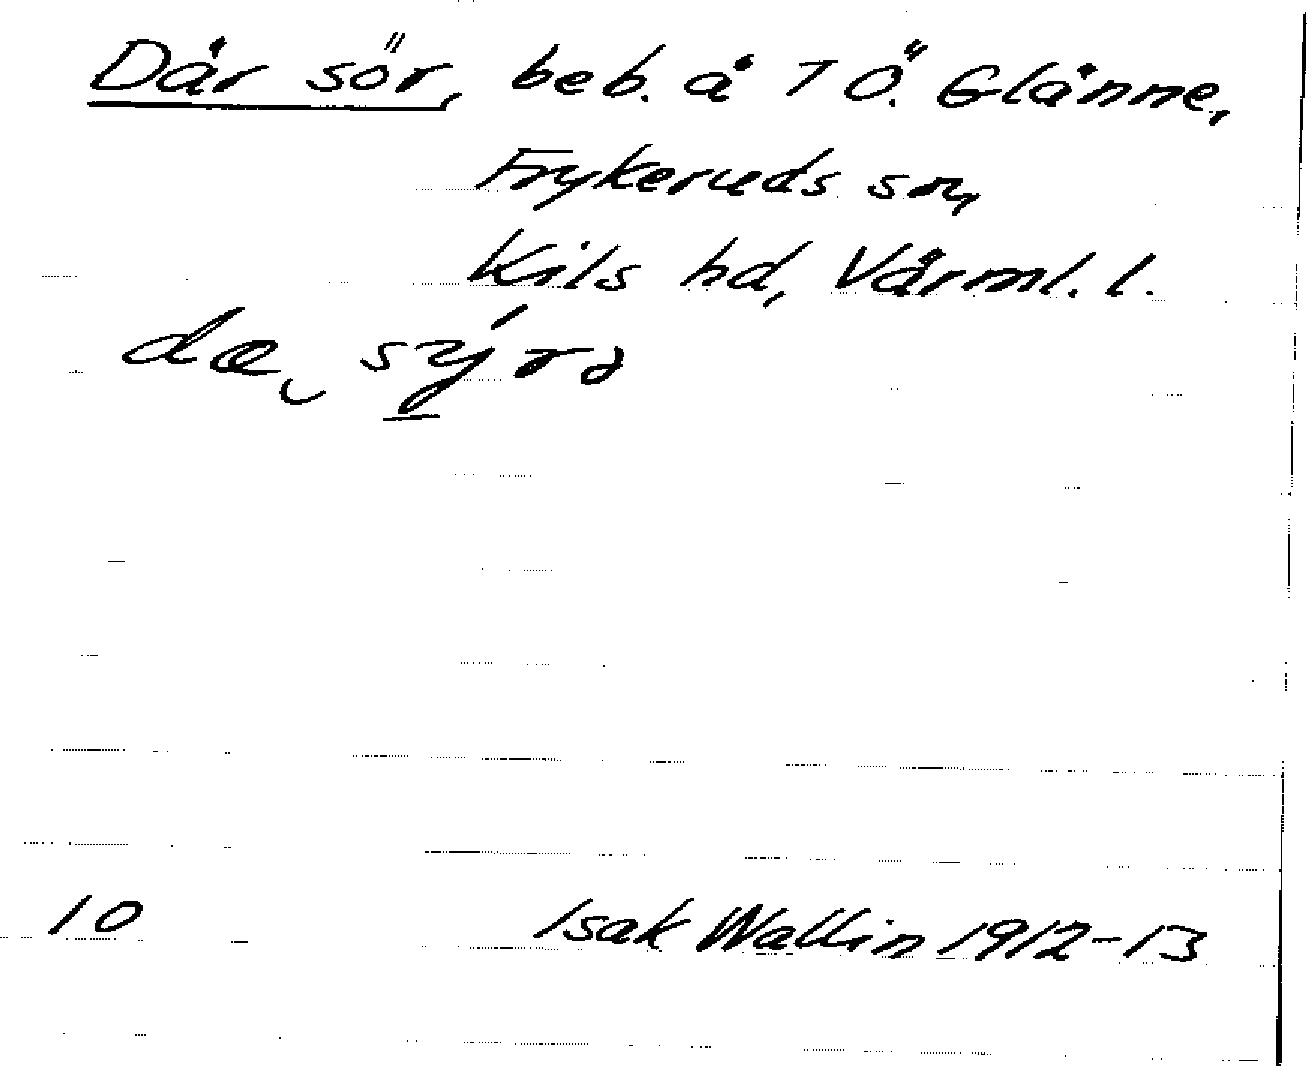 Där sör, beb. å 7 Ö. Glänne,
Frykeruds sn,
Kils hd, Värml. l.
Isak Wallin 1912-13
10